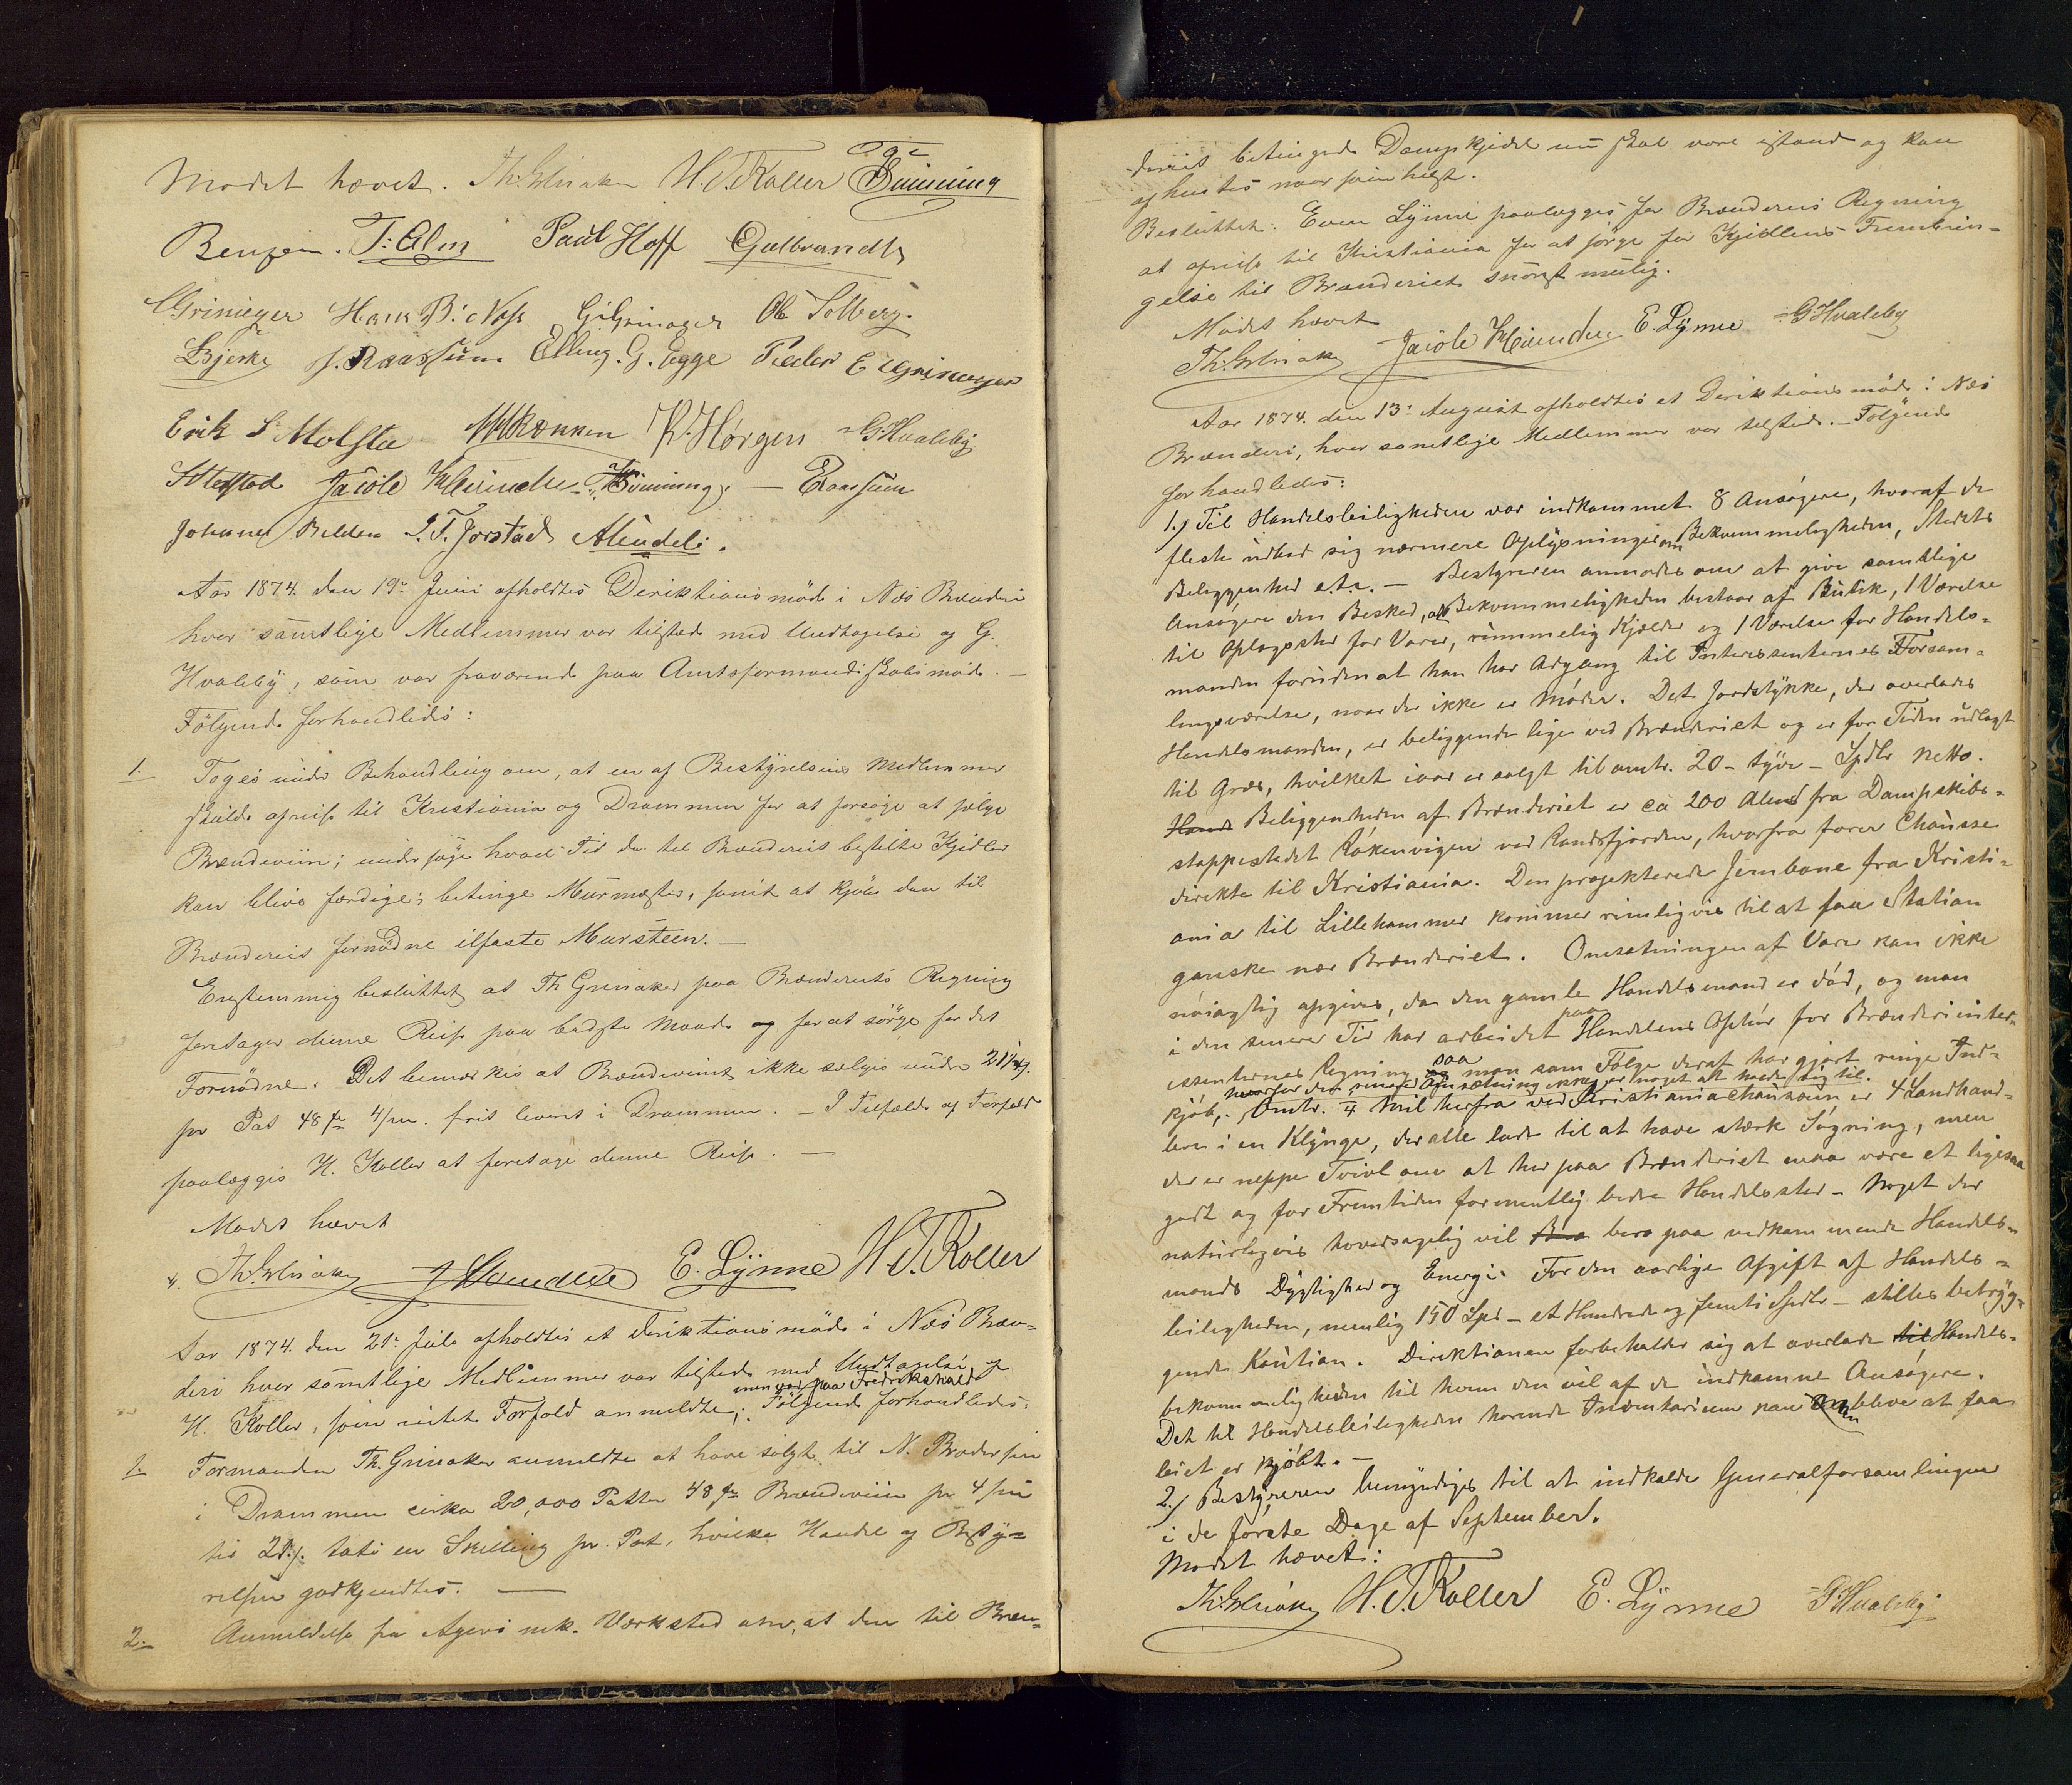 Mødet hævet. Th. Grinaker H. T. Koller
T. Alm Paul Hoff Gulbrandt
Grinieger Hans B. Næss G. Grinager Ole Solberg.
Bjerke J. Raassum Elling. G. Egge Peder E Grinager
Erik P. Molsta M Rækken K. Hørgen G. Hvaleby
Jacob Hvinden — E Raassum
Johannes Belden I. T. Jorstad
Aar 1874 den 19de Juni afholdtes Deriktionsmøde i Næs Brænderi
hvor samtlige Medlemmer var tilstede med Undtagelse af G.
Hvaleby, som var fraværende paa Amtsformandskabsmøde. —
Følgende forhandledes:
1. Toges under Behandling om, at en af Bestyrelsens Medlemmer
skulde afreise til Kristiania og Drammen for at forsøge at sælge
Brændeviin; undersøge hvad Tid de til Brænderiet bestilte Kjedler
kan blive færdige; betinge Murmester, samt at kjøbe den til
Brænderiet fornødne ilfaste Mursteen. —
Enstemmig besluttet at Th Grinaker paa Brænderiets Regning
foretager denne Reise paa bedste Maade og for at sørge for det
Fornødne. Det bemærkes at Brændevinet ikke sælges under 21
pr Pot 48 frit leveret i Drammen. — I Tilfælde af Forfald
paalægges H. Koller at foretage denne Reise. —
Mødet hævet
Th. Grinaker J Hvinden E. Lynne H. T. Koller
Aar 1874. den 21de Juli afholdtes et Deriktionsmøde i Næs Bræn-
deri hvor samtlige Medlemmer var tilstede med Undtagelse af
H. Koller, som intet Forfald anmeldte; men var paa Fredrikshald Følgende forhandledes:
1. Formanden Th. Grinaker anmeldte at have solgt til N. Brodersen
i Drammen cirka 20,000 Potter 48 Brændeviin pr 4
til 21 en Skilling pr. Pot, hvilke Handel af Besty-
relsen godkjendtes. —
2. Anmeldelse fra Agers mek. Værksted om, at den til Bræn-
deriet betingede Dampkjedel nu skal være istand og kan
afhentes naar som helst.
Besluttet: Even Lynne paalægges for Brænderiets Regning
at afreise til Kristiania for at sørge for Kjedlens Frembrin-
gelse til Brænderiet snarest mulig.
Mødet hævet
Th. Grinaker Jacob Hvinden E. Lynne G. Hvaleby
Aar 1874. den 13de August afholdtes et Deriktionsmøde i Næs
Brænderi, hvor samtlige Medlemmer var tilstede. — Følgende
forhandledes:
1.) Til Handelsleiligheden var indkommet 8 Ansøgere, hvoraf de
fleste udbad sig nærmere Oplysninger om Bekvemmeligheden, Stedets
Beliggenhed etc. — Bestyreren anmodes om at give samtlige
Ansøgere den Besked, at Bekvemmeligheden bestaar af Butik, 1 Værelse
til Oplagssted for Varer, rummelig Kjælder og 1 Værelse for Handels-
manden foruden at han har Adgang til Interessenternes Forsam-
lingsværelse, naar der ikke er Møder. Det Jordstykke, der overlades
Handelsmanden, er beliggende lige ved Brænderiet og er for Tiden udlagt
til Græs, hvilket iaar er solgt til omtr. 20 - tyve - Spdlr netto.
Hand Beliggenheden af Brænderiet er ca 200 Alen fra Dampskibs-
stoppestedet Røkenvigen ved Randsfjorden, hvorfra fører Chausse
direkte til Kristiania. Den projekterede Jernbane fra Kristi-
ania til Lillehammer kommer rimeligvis til at faa Station
ganske nær Brænderiet. Omsætningen af Varer kan ikke
nøiagtig opgives, da den gamle Handelsmand er død, og man
i den senere Tid har arbeidet paa Handelens Ophør for Brænderiinter-
essenternes Regning saa man som Følge deraf har gjort ringe Ind-
kjøb, hvorfor den senere Omsætning ikke er noget at holde sig til. Omtr. 1/4 Mil herfra ved Kristianiachausseen er 4 Landhand-
lere i en Klynge, der alle lader til at have stærk Søgning, men
der er neppe Tvivl om at her paa Brænderiet maa være et ligesaa
godt og for Fremtiden formentlig bedre Handelssted - Noget der
naturligvis hovedsagelig vil bero paa vedkommende Handels-
mands Dygtighed og Energi. For den aarlige Afgift af Handels-
leiligheden, nemlig 150 Spd - et Hundrede og femti Spdlr - stilles betryg-
gende Kaution. Direktionen forbeholder sig at overlade til Handels-
bekvemmeligheden til hvem den vil af de indkomne Ansøgere.
Det til Handelsleiligheden hørende Inventarium kan blive at faa
leiet er kjøbt. —
2.) Bestyreren bemyndiges til at indkalde Generalforsamlingen
i de første Dage af September.
Mødet hævet:
Th. Grinaker H. T. Koller E. Lynne G. Hvaleby